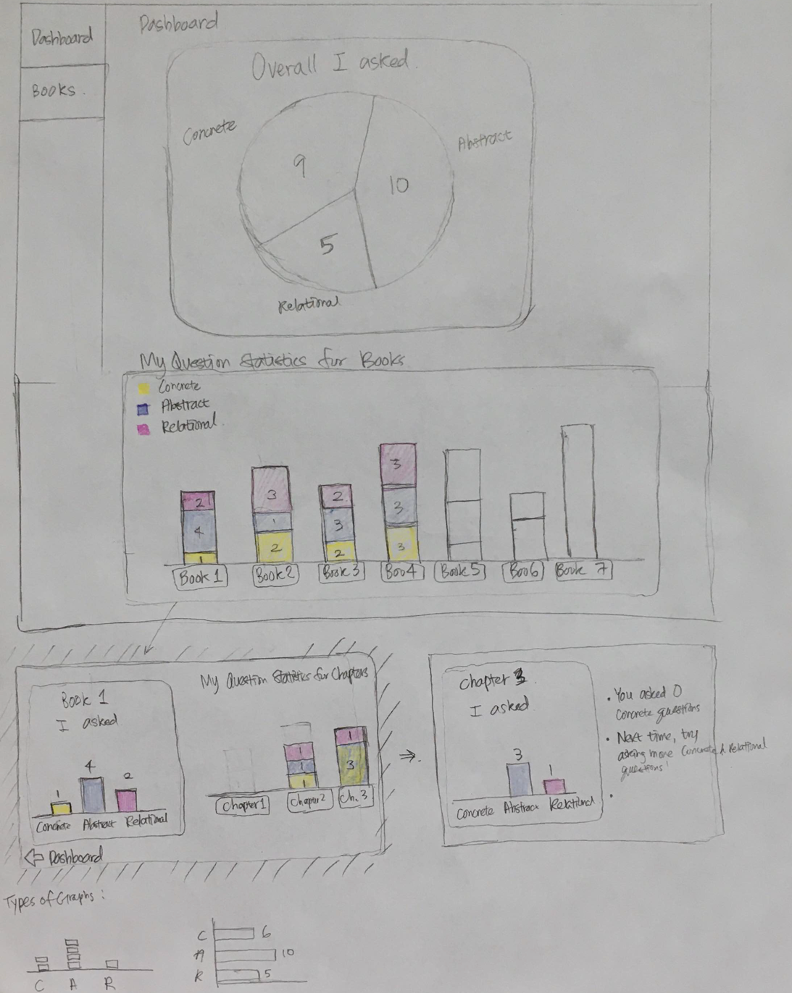 Dashboard
Books.
Dashboard
Overall I asked.
Concrete
Abstract
9
10
5
Relational
My Question Statistics for Books
Concrete
Abstract
Relational
2
4
1
3
1
2
2
3
2
3
3
3
Book 1
Book 2
Book 3
Boo4
Book 5
Boo6
Book 7
Book 1
I asked
1
4
2
Concrete Abstract Relational
My Question Statistics for Chapters
1
1
1
1
3
Chapter 1
Chapter 2
Ch. 3
⇐ Dashboard
⇒
Chapter 3
I asked
3
1
Concrete Abstract Relational
• You asked 0
Concrete questions
• Next time, try
asking more Concrete & Relational
questions!
•
Types of Graphs:
C A R
C 6
A 10
R 5